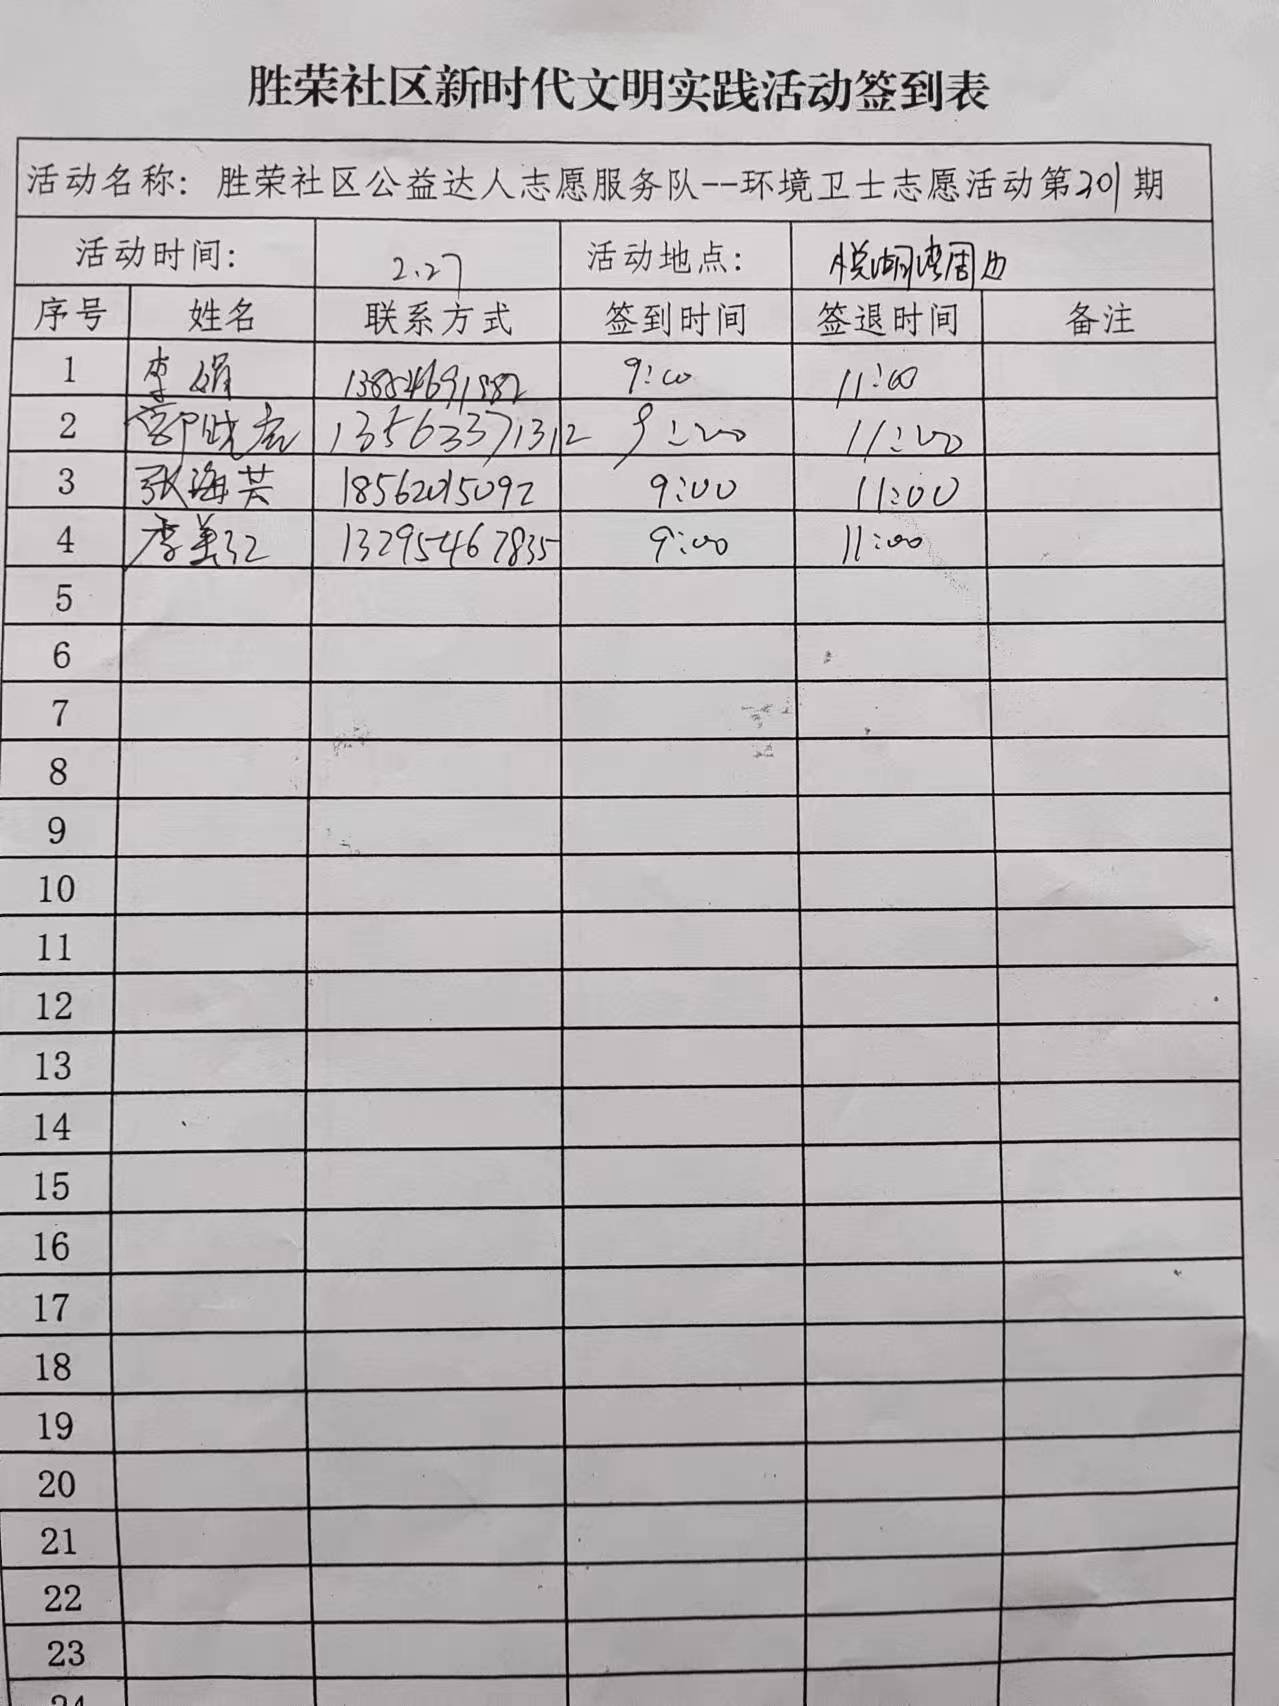 胜荣社区新时代文明实践活动签到表
活动名称：胜荣社区公益达人志愿服务队--环境卫士志愿活动第201期
活动时间： 2.27 活动地点： 悦湖湾周边
序号 姓名 联系方式 签到时间 签退时间 备注
1 李娟 9:00 11:00
2 13563371312 9:00 11:00
3 张海芸 18562015092 9:00 11:00
4 李美江 13295467835 9:00 11:00
5
6
7
8
9
10
11
12
13
14
15
16
17
18
19
20
21
22
23
24